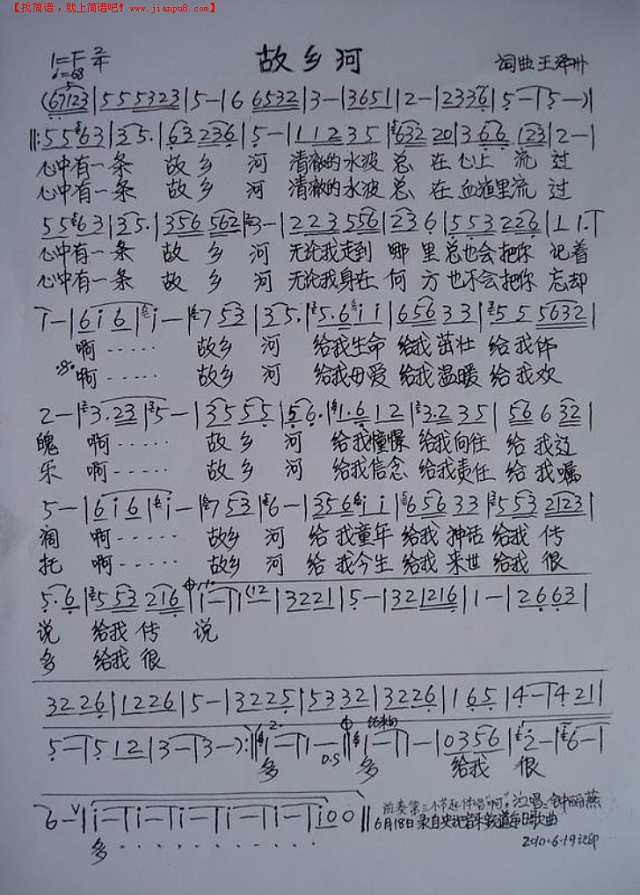 【找简谱，就上简谱吧！www.jianpu8.com】
故乡河
1=F 2/4
♩=68
词曲 王泽州
(67123|555323|5-|6 6532|3-|3651|2-|2336|5-|5-)|
‖:55 63|35.|63 236|5-|112 35|632 20|366 123|2-|
心中有一条 故 乡 河 清澈的水波 总 在 心上 流 过
心中有一条 故 乡 河 清澈的水波 总 在 血道里流 过
55 63|35.|356 562|3-|223 556|23 6|553 226|11.1|
心中有一条 故 乡 河 无论我走到 哪 里 总也会把你 记着
心中有一条 故 乡 河 无论我身在 何 方 也不会把你 忘却
1-|6 i 6|i-|7 53|35.|5.6 i i|656 33|55 5632|
啊…… 故乡 河 给我生命 给我茁壮 给我体
啊…… 故乡 河 给我母爱 给我温暖 给我欢
2-|3.23|5-|35 55|56.|1.6 12|3.2 35|56 6 32|
魄 啊…… 故 乡 河 给我憧憬 给我向往 给 我辽
乐 啊…… 故 乡 河 给我信念 给我责任 给 我嘱
5-|6 i 6|i-|7 53|6-|356 i i|656 33|553 2123|
阔 啊…… 故乡 河 给 我童年 给我神话 给我 传
托 啊…… 故乡 河 给 我今生 给我来世 给我 很
5.6|553 216|1-|1 (12|3221|5-|321216|1-|2663|
说 给我 传 说
多 给我 很
3226|1226|5-|3225|5332|3226|165|4-|421|
5-|512|3-|3-):‖1-|1-‖1-|1-|0356|2-|6-|
2. D.S 结束句
多 多 给我 很
6-|i-|i-|i-|i-|i-|i00‖
多………
前奏第三个节起伴唱“啊”。 演唱:钟丽燕
6月18日录自央视音乐频道每日歌曲
2010.6.19记印